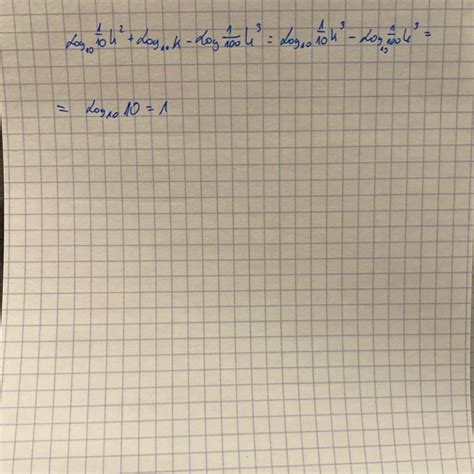 Log₁₀ 1/10 k² + Log₁₀ k - Log 1/100 k³ = Log₁₀ 1/10 k³ - Log₁₀ 1/100 k³ =
= Log₁₀ 10 = 1